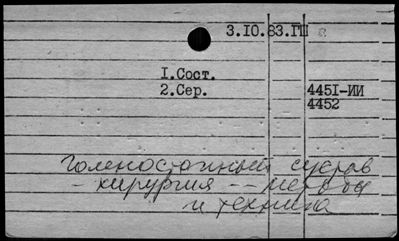 3.10.83.ГШ
1.Сост.
2.Сер.
4451-ИИ
4452
Голеностопный сустав
- хирургия -- методы
и техника